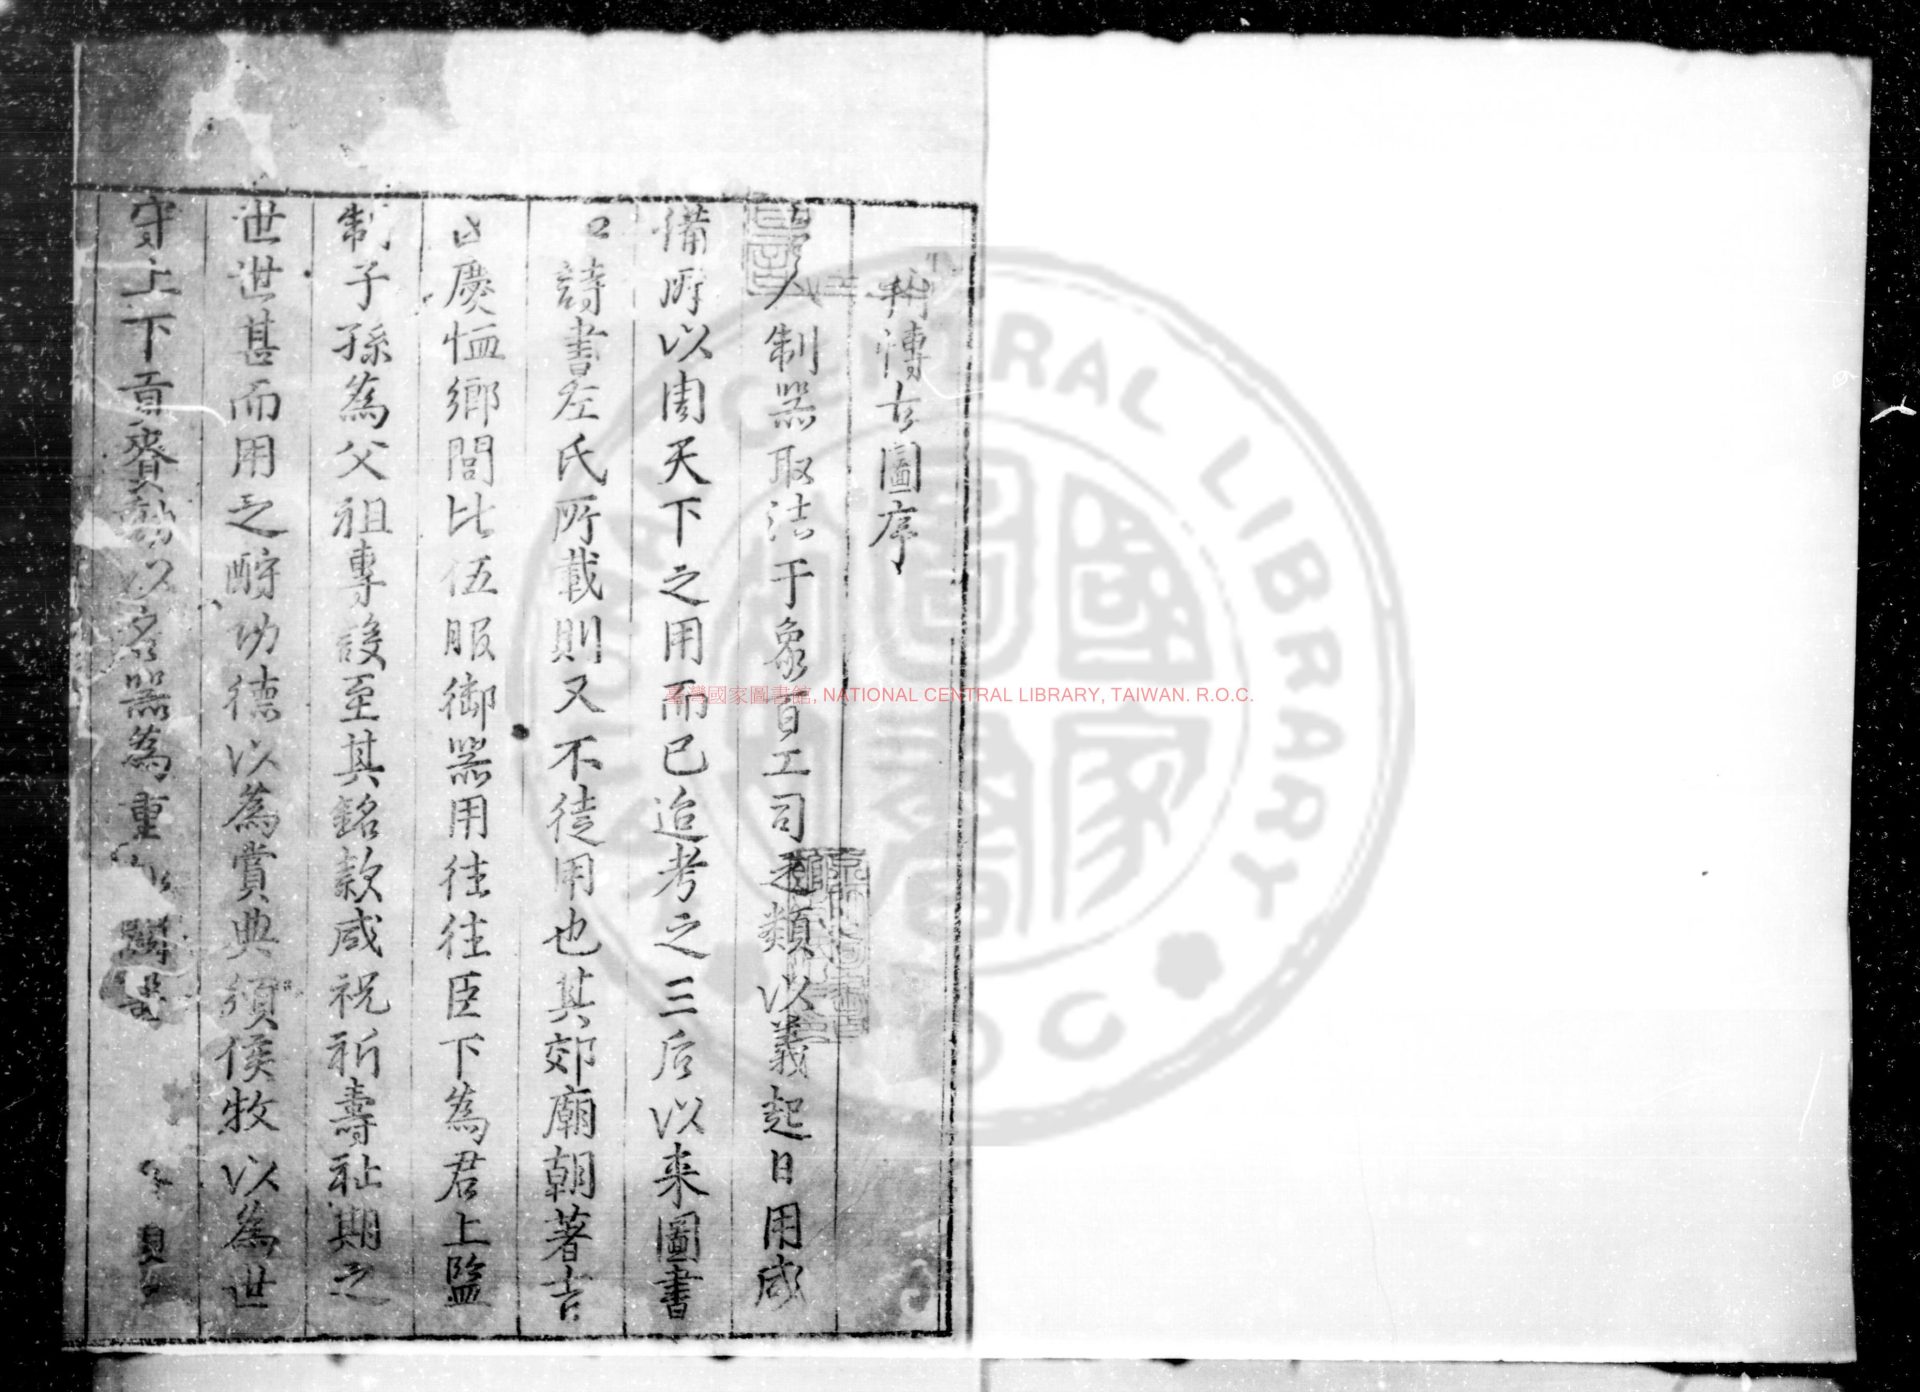 博古圖序
人制器取法于象百工司之類以義起日用咸
備所以周天下之用而已追考之三后以来圖書
詩書左氏所載則又不徒用也其郊廟朝著吉
凶慶恤鄉閭比伍服御器用往往臣下為君上鑒
制子孫為父祖專設至其銘款咸祝祈壽祉期之
世世甚而用之酧功德以為賞典須侯牧以為世
守上下貢賚以名器為重
臺灣國家圖書館, NATIONAL CENTRAL LIBRARY, TAIWAN. R.O.C.
NATIONAL CENTRAL LIBRARY ROC
國家圖書